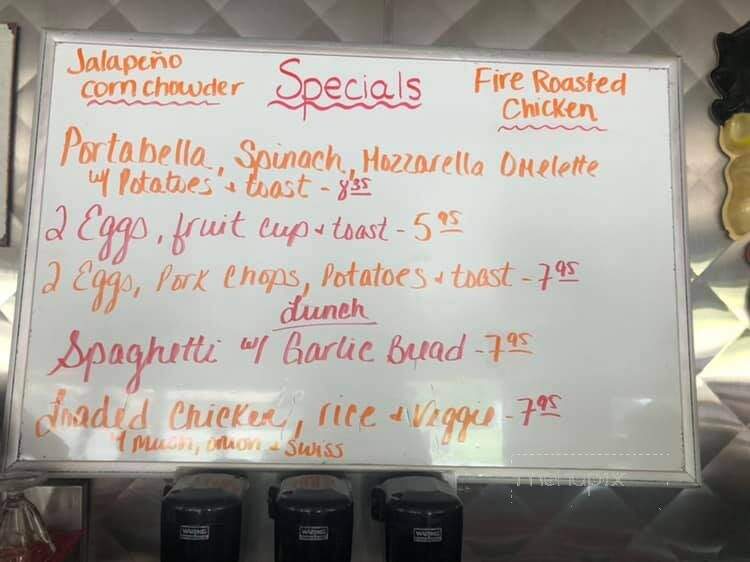 Jalapeño
corn chowder
Specials
Fire Roasted
Chicken
Portabella, Spinach, Mozzarella Omelette
w/ Potatoes + toast - 8.35
2 Eggs, fruit cup + toast - 5.95
2 Eggs, Pork Chops, Potatoes + toast - 7.95
Lunch
Spaghetti w/ Garlic Bread - 7.95
Loaded Chicken, rice + Veggie - 7.95
w/ Mush, onion + Swiss
WARNING
WARNING
WARNING
menupix